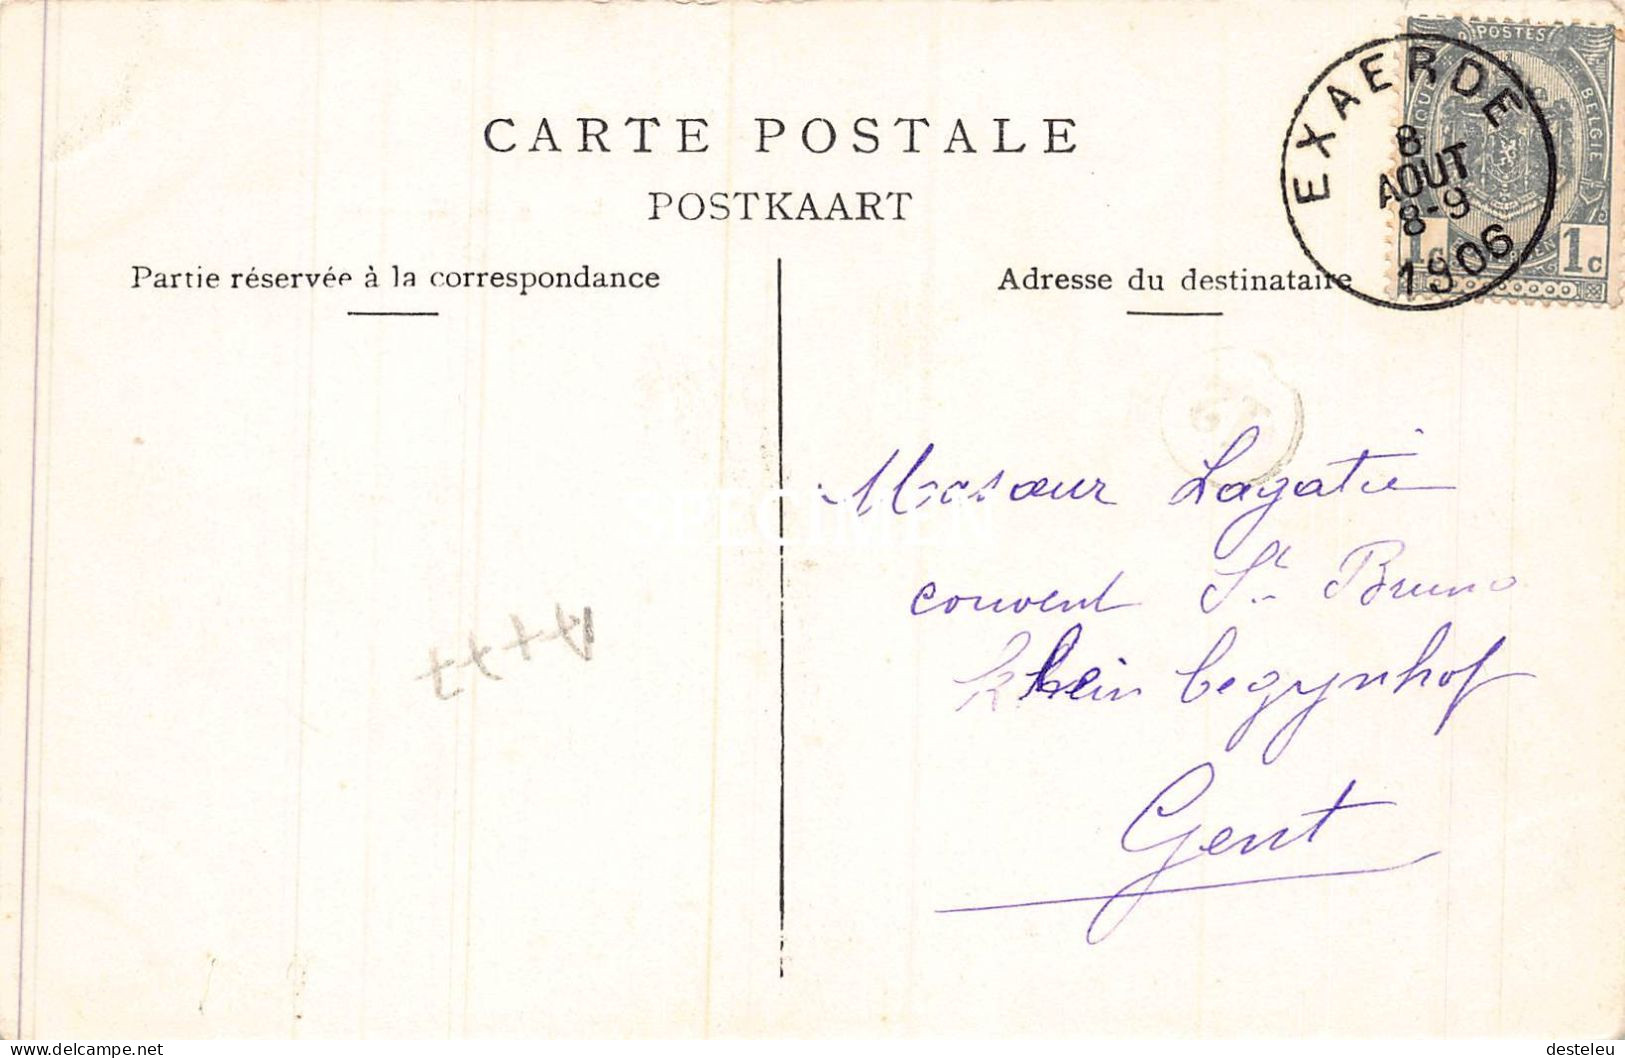 CARTE POSTALE
POSTKAART
Partie réservée à la correspondance
Adresse du destinataire
EXAERDE
8
AOUT
8-9
1906
POSTES
BELGIE
1c 1c
Masœur Lagatie
convent St. Bruno
klein begynhof
Gent
SPECIMEN
delcampe.net
desteleu